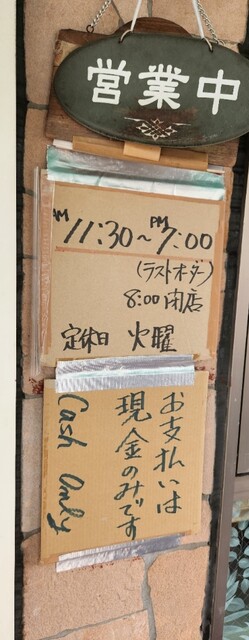 営業中
AM 11:30~PM 7:00
(ラストオーダー)
8:00 閉店
定休日 火曜
お支払いは
現金のみです
Cash Only